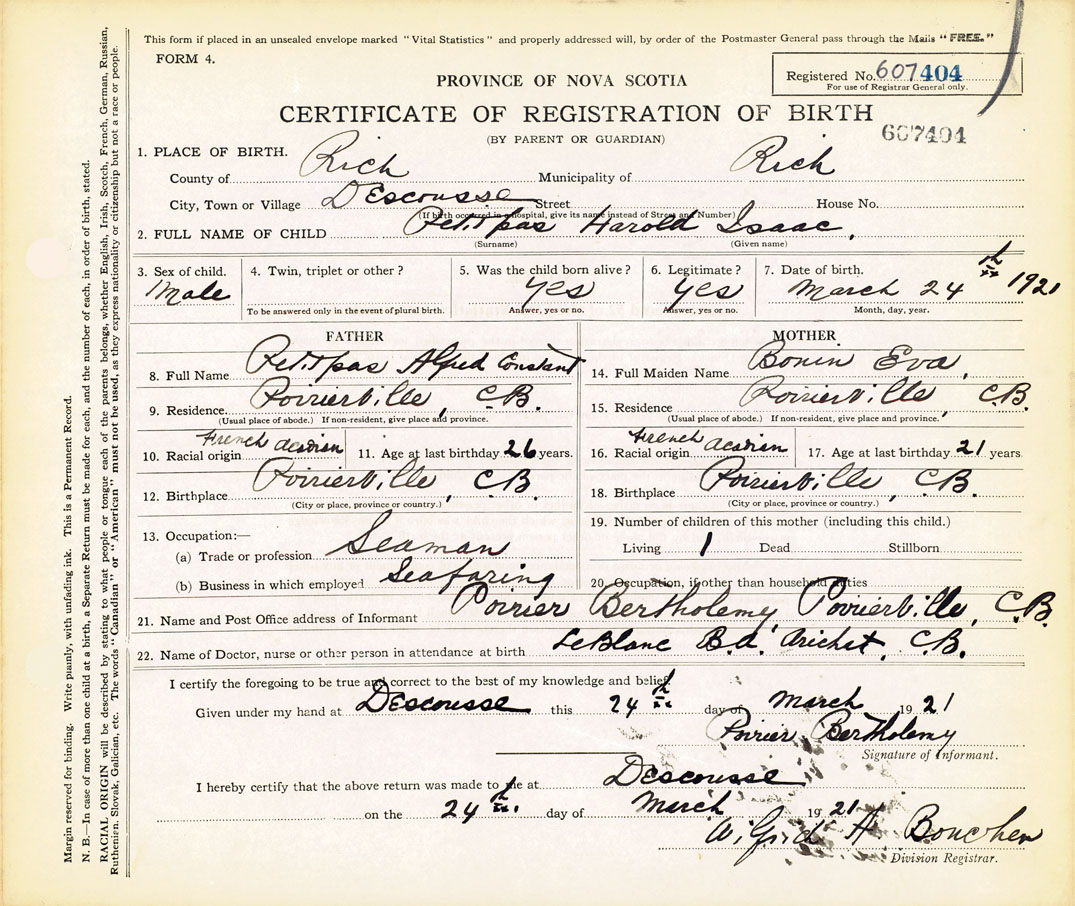 This form if placed in an unsealed envelope marked "Vital Statistics" and properly addressed will, by order of the Postmaster General pass through the Mails "FREE."
FORM 4.
Registered No. 607404
For use of Registrar General only.
PROVINCE OF NOVA SCOTIA
CERTIFICATE OF REGISTRATION OF BIRTH
607404
(BY PARENT OR GUARDIAN)
1. PLACE OF BIRTH.
County of Rich Municipality of Rich
City, Town or Village DEscousse Street House No.
(If birth occurred in a hospital, give its name instead of Street and Number)
2. FULL NAME OF CHILD Petitpas Harold Isaac,
(Surname) (Given name)
3. Sex of child. Male
4. Twin, triplet or other?
To be answered only in the event of plural birth.
5. Was the child born alive? yes
Answer, yes or no.
6. Legitimate? yes
Answer, yes or no.
7. Date of birth. March 24th 1921
Month, day, year.
FATHER
8. Full Name Petitpas Alfred Constant
9. Residence. Poirierville, C.B.
(Usual place of abode.) If non-resident, give place and province.
10. Racial origin French Acadian
11. Age at last birthday 26 years.
12. Birthplace Poirierville, C.B.
(City or place, province or country.)
13. Occupation:—
(a) Trade or profession Seaman
(b) Business in which employed Seafaring
MOTHER
14. Full Maiden Name Bonin Eva,
15. Residence Poirierville, C.B.
(Usual place of abode.) If non-resident, give place and province.
16. Racial origin French Acadian
17. Age at last birthday 21 years
18. Birthplace Poirierville, C.B.
(City or place, province or country.)
19. Number of children of this mother (including this child.)
Living 1 Dead Stillborn
20. Occupation, if other than household duties
21. Name and Post Office address of Informant Poirier Bertholemy, Poirierville, C.B.
22. Name of Doctor, nurse or other person in attendance at birth LeBlanc B.A. Arichat, C.B.
I certify the foregoing to be true and correct to the best of my knowledge and belief.
Given under my hand at DEscousse this 24th day of March 1921
Poirier Bertholemy
Signature of Informant.
I hereby certify that the above return was made to me at DEscousse
on the 24th day of March 1921
Wilfrid H Boucher
Division Registrar.
Margin reserved for binding. Write plainly, with unfading ink. This is a Permanent Record.
N. B.—In case of more than one child at a birth, a Separate Return must be made for each, and the number of each, in order of birth, stated.
RACIAL ORIGIN will be described by stating to what people or tongue each of the parents belongs, whether English, Irish, Scotch, French, German, Russian,
Ruthenien, Slovak, Galician, etc. The words "Canadian" or "American" must not be used, as they express nationality or citizenship but not a race or people.